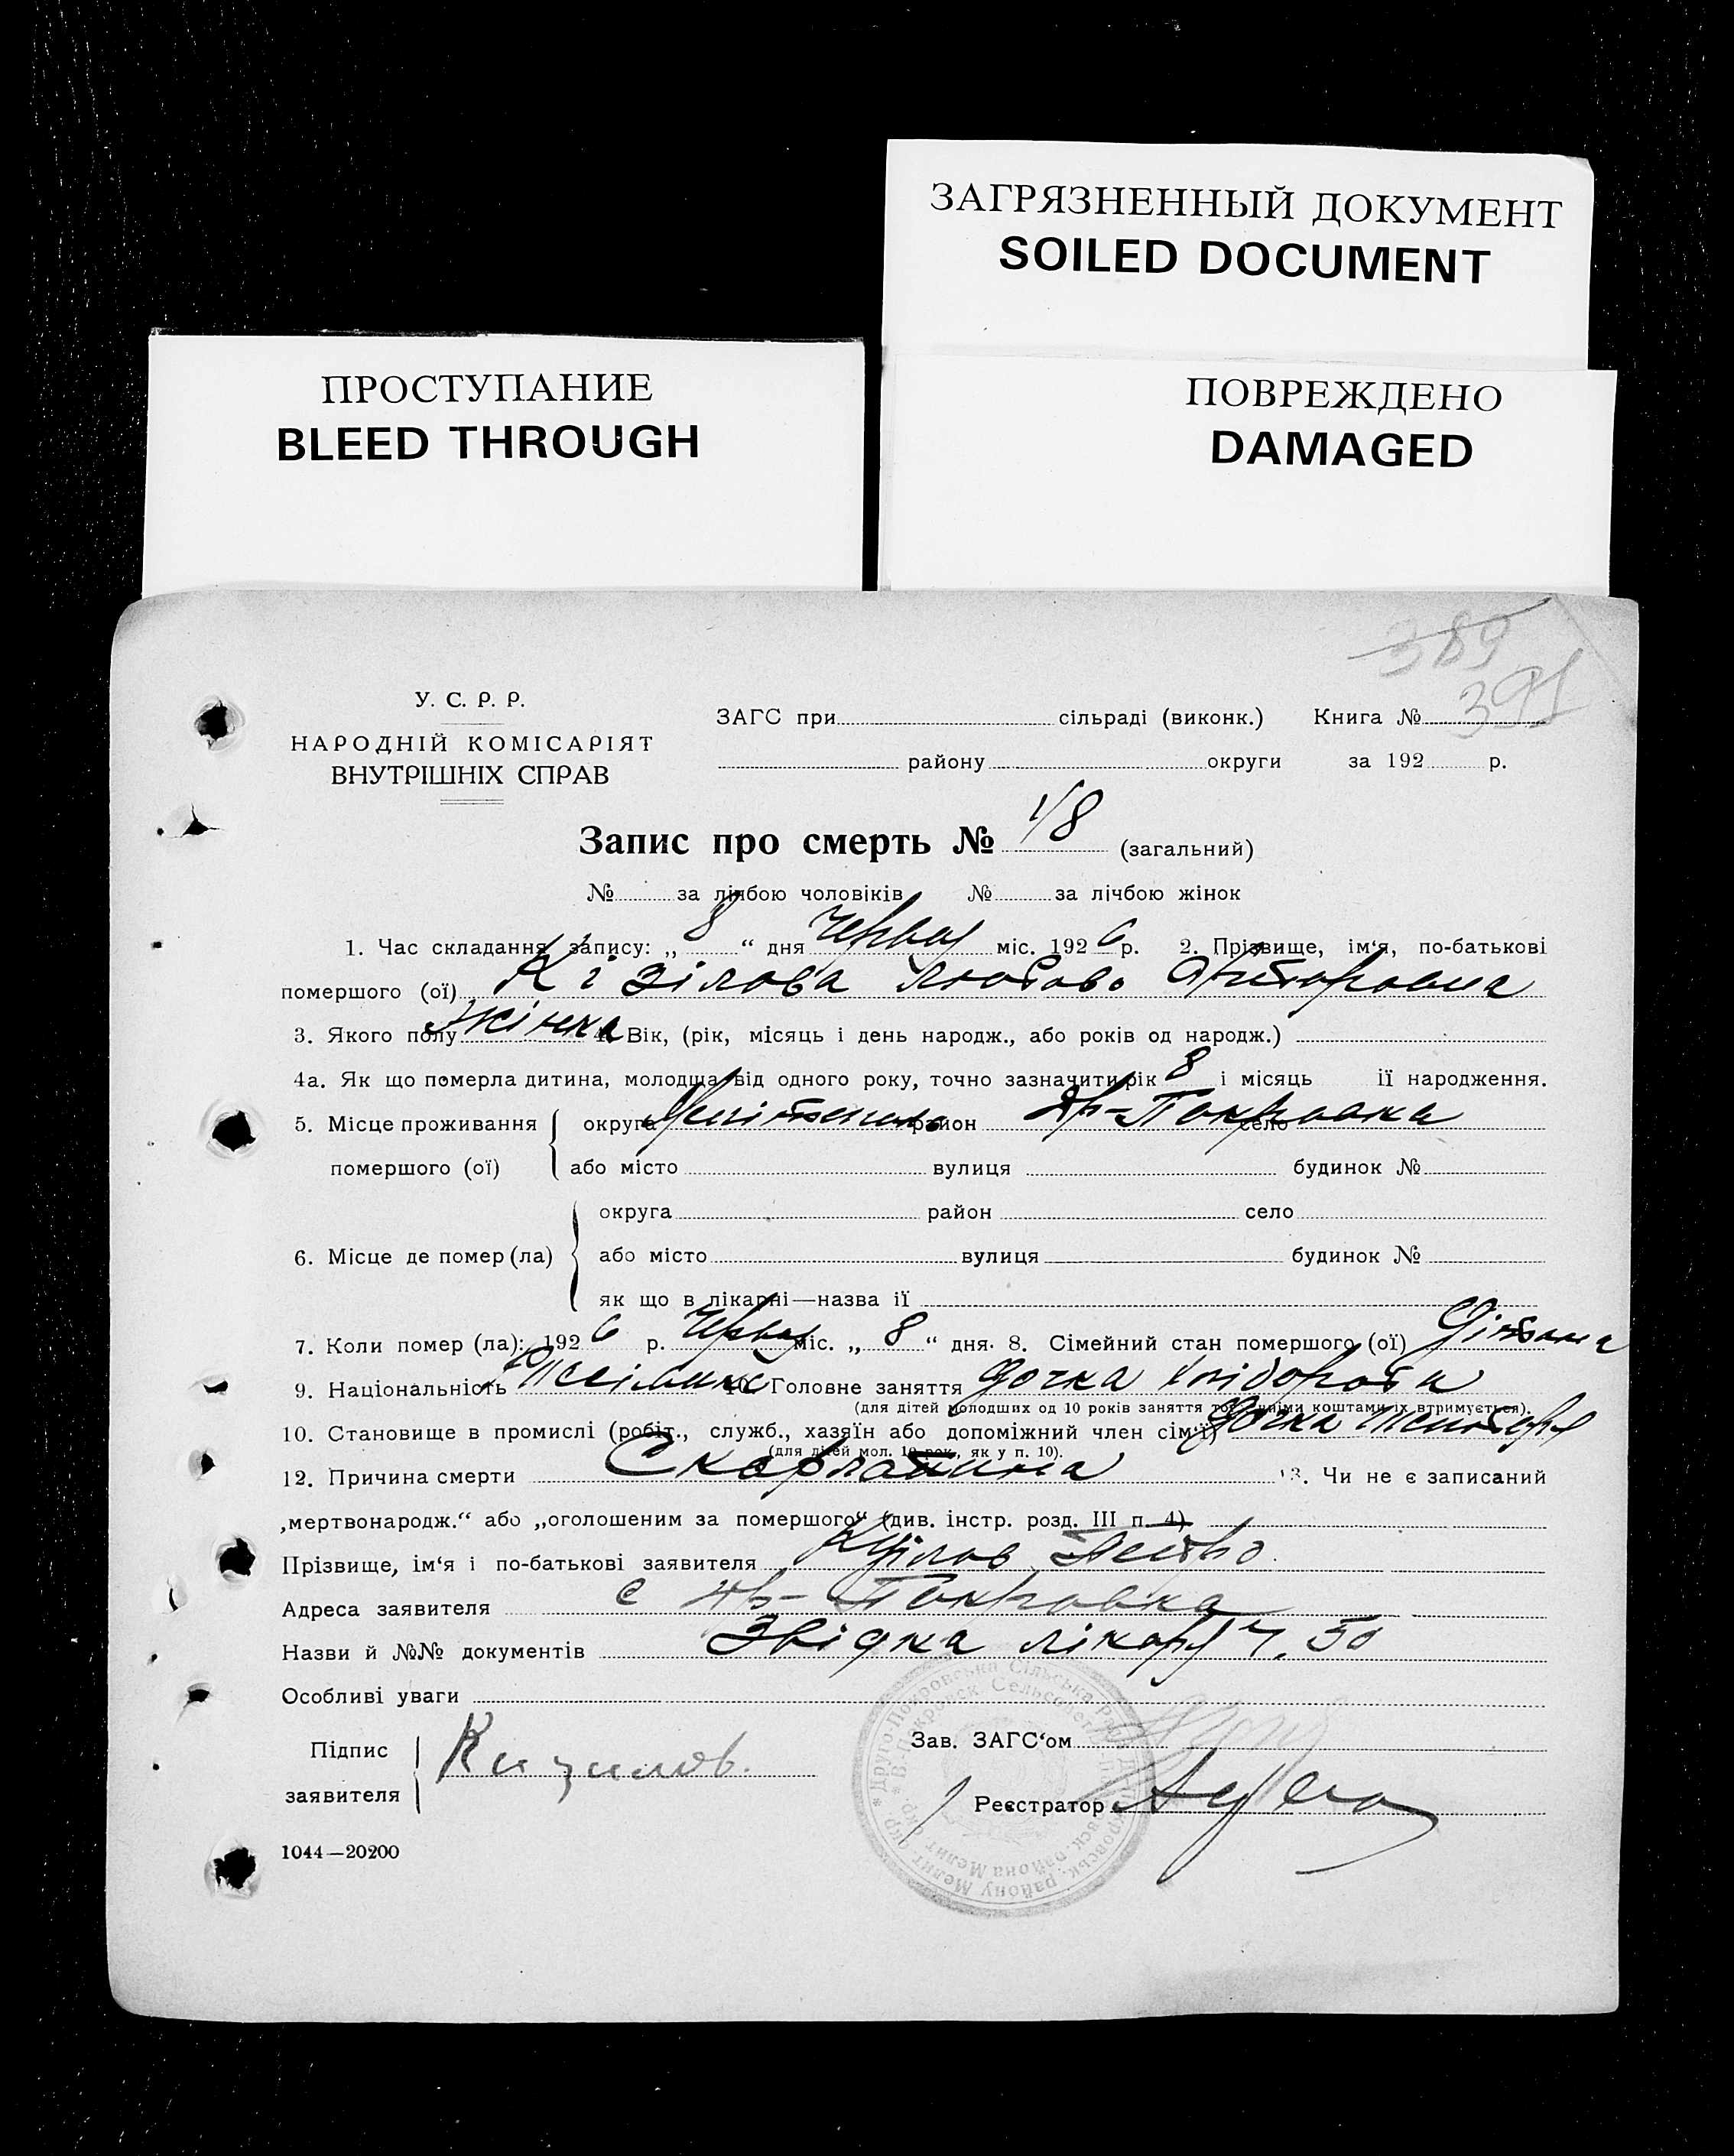 ЗАГРЯЗНЕННЫЙ ДОКУМЕНТ
SOILED DOCUMENT
ПРОСТУПАНИЕ
BLEED THROUGH
ПОВРЕЖДЕНО
DAMAGED
389
391
У. С. Р. Р.
НАРОДНІЙ КОМІСАРІЯТ
ВНУТРІШНІХ СПРАВ
ЗАГС при сільраді (виконк.) Книга №
району округи за 192 р.
Запис про смерть № 48 (загальний)
№ за лічбою чоловіків № за лічбою жінок
1. Час складання запису: „ 8 “ дня міс. 192 6 р. 2. Прізвище, ім‘я, по-батькові
помершого (ої) Кізілова
3. Якого полу Жінка 4. Вік, (рік, місяць і день народж., або років од народж.)
4а. Як що померла дитина, молодша від одного року, точно зазначити рік 8 і місяць її народження.
5. Місце проживання помершого (ої) округа район Др-Покровка село
або місто вулиця будинок №
6. Місце де помер (ла) округа район село
або місто вулиця будинок №
як що в лікарні—назва її
7. Коли помер (ла): 192 6 р. міс. „ 8 “ дня. 8. Сімейний стан помершого (ої)
9. Національність Головне заняття дочка
(для дітей молодших од 10 років заняття того, чиїми коштами їх втримується).
10. Становище в промислі (робіт., служб., хазяїн або допоміжний член сім‘ї) дочка
(для дітей мол. 10 рок., як у п. 10).
12. Причина смерти Скарлатина 13. Чи не є записаний
„мертвонародж.“ або „оголошеним за помершого“ (див. інстр. розд. III п. 4)
Прізвище, ім‘я і по-батькові заявителя Кізілов Петро
Адреса заявителя с Др-Покровка
Назви й №№ документів Звідка лікаря ч. 50
Особливі уваги
Підпис заявителя Кизилов.
Зав. ЗАГС‘ом
Реєстратор
1044—20200